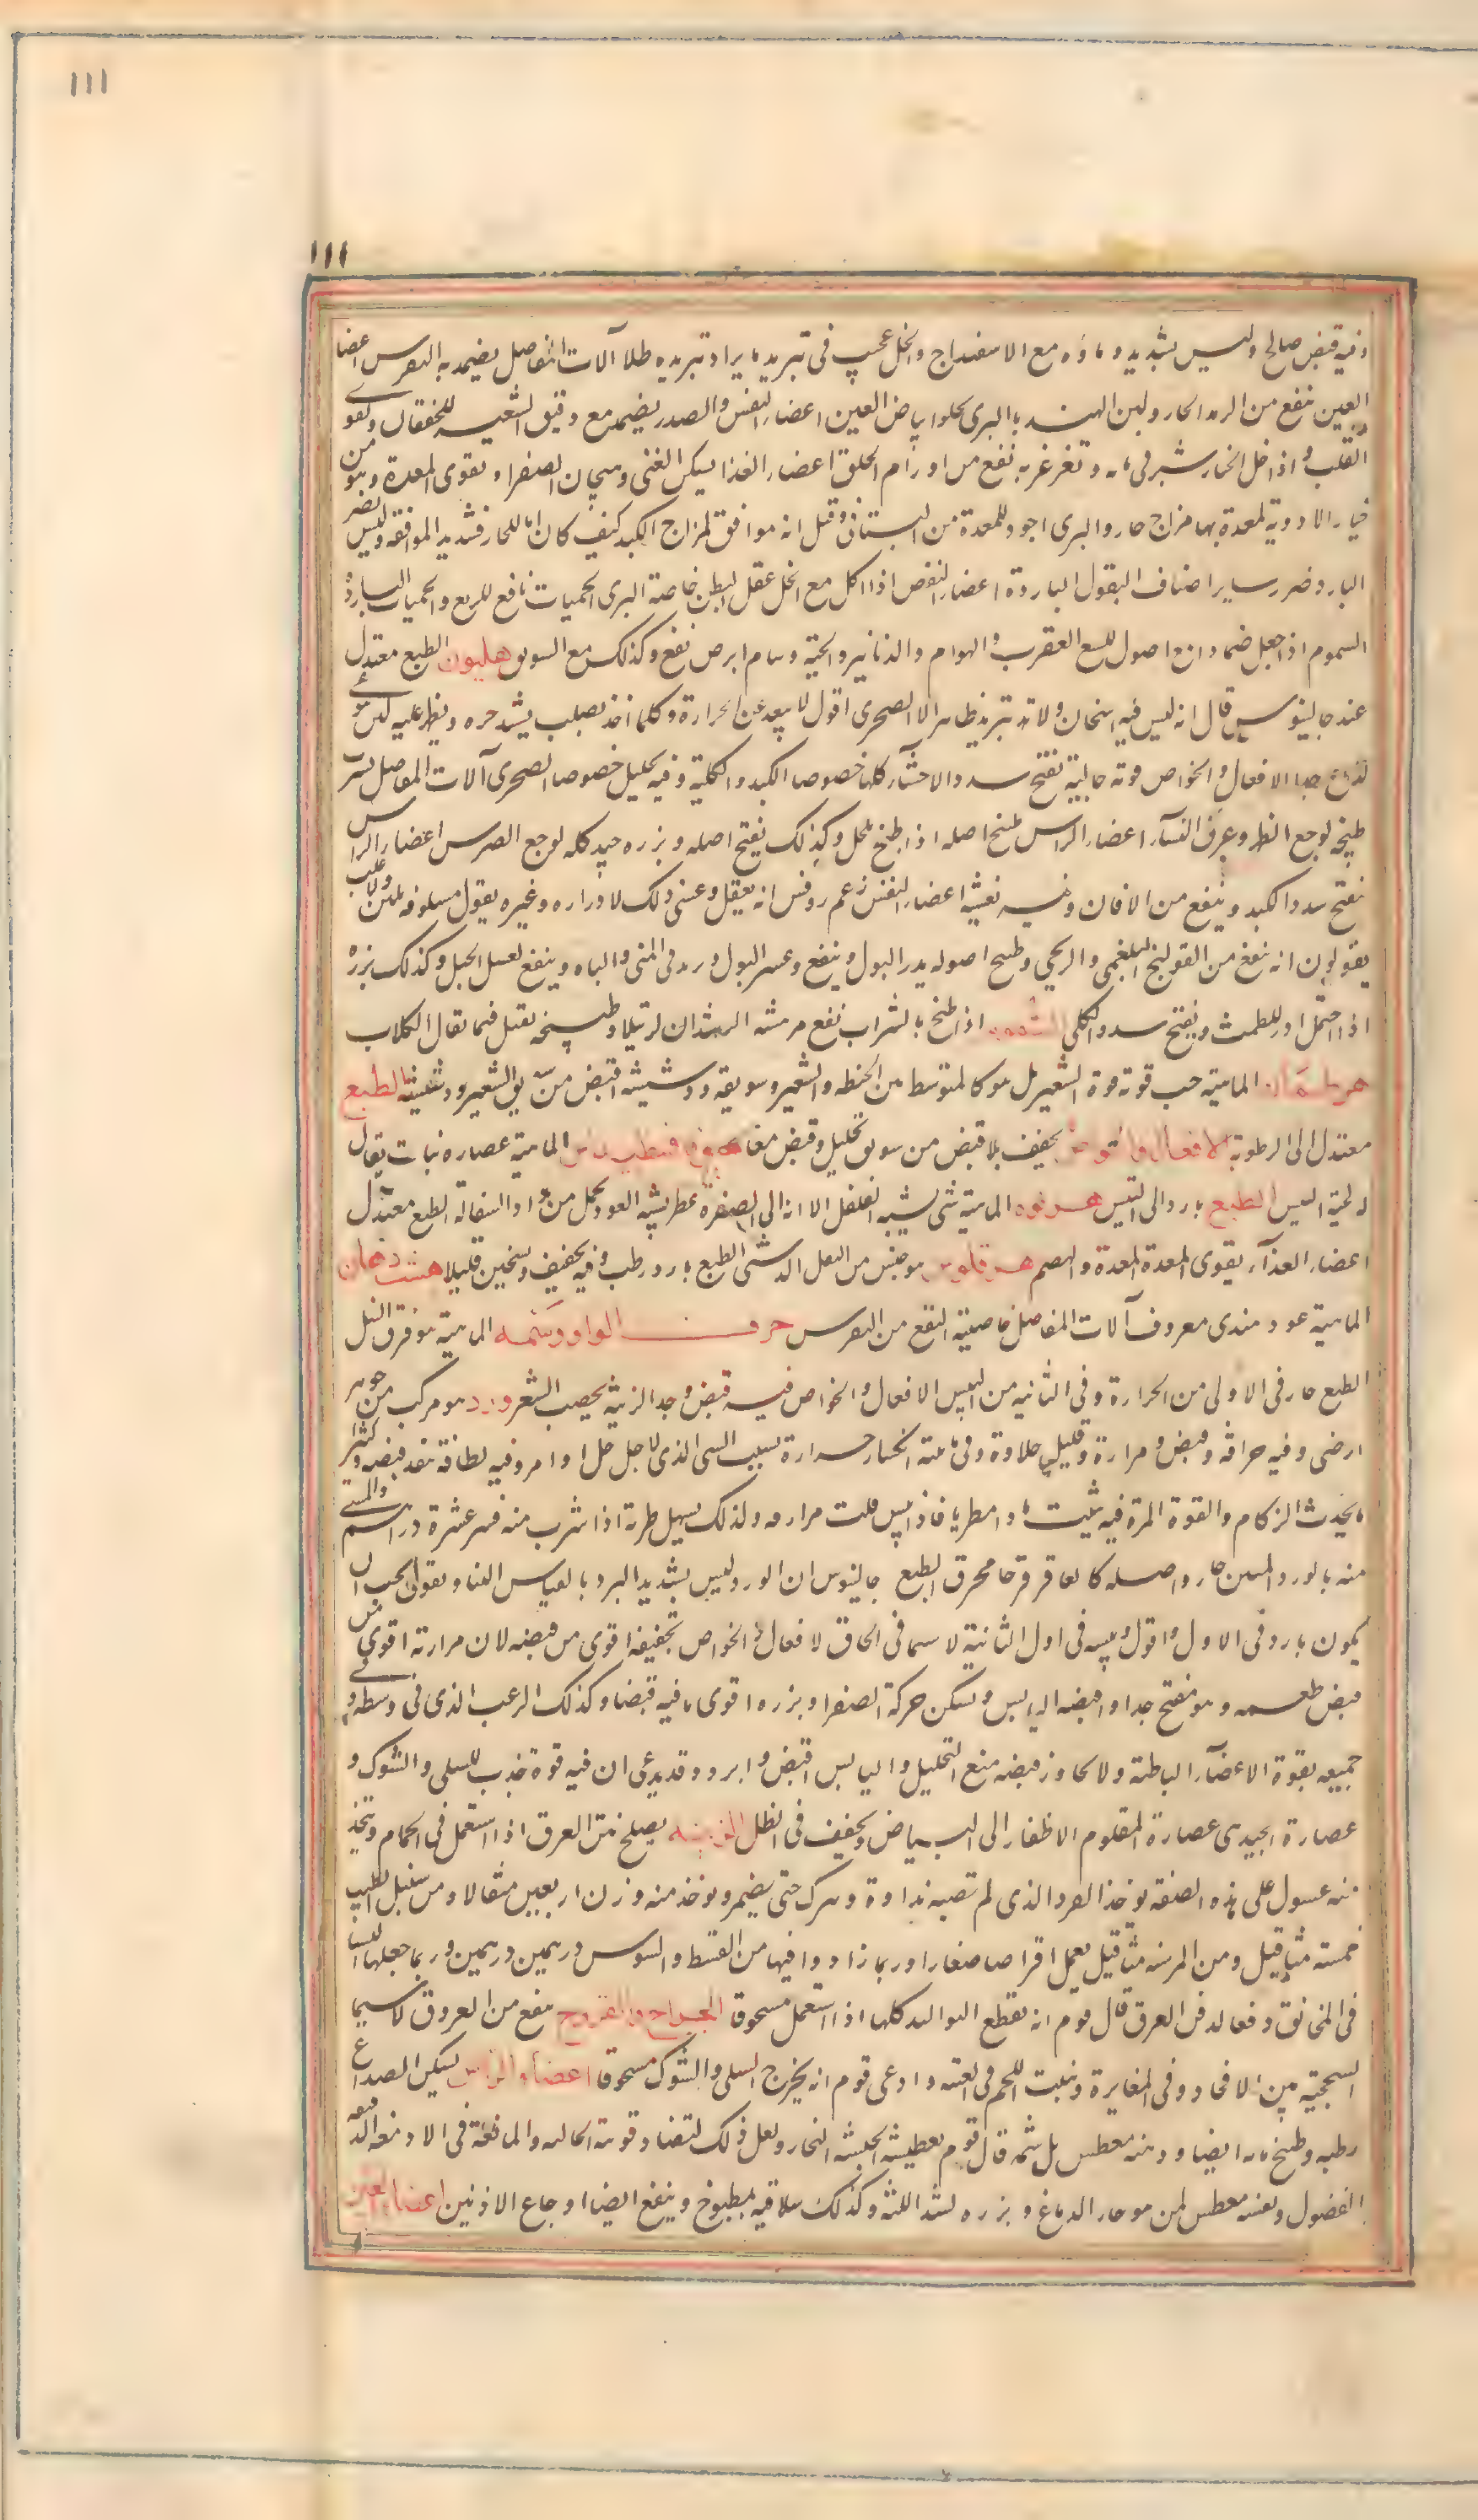 ١١١
١١١
وفيه قبض صالح وليس بشديد وماؤه مع الاسفيداج والخل عجيب في تبريد ما يراد تبريده طلا آلات المفاصل يضمد به النقرس اعضا
العين ينفع من الرمد الحار ولبن الهندبا البرى يجلو بياض العين اعضاء النفس والصدر يضمد مع دقيق الشعير للخفقان ويقوى
القلب واذا حل الخيارشنبر في مائه وتغرغر به نفع من اورام الحلق اعضاء الغذا يسكن الغثى وهيجان الصفرا ويقوى المعدة وهو من
خيار الادوية لمعدة بها مزاج حار والبرى اجود للمعدة من البستانى وقيل انه موافق لمزاج الكبد كيف كان اما للحار فشديد الموافقه وليس يضر
البارد ضرر ساير اصناف البقول الباردة اعضاء النفض اذا اكل مع الخل عقل البطن خاصة البرى الحميات نافع للربع والحميات الباردة
السموم اذا جعل ضمادا مع اصوله للسع العقرب والهوام والزنانير والحية وسام ابرص نفع وكذلك مع السويق هليون الطبع معتدل
عند جالينوس قال انه ليس فيه اسخان ولا تبريد ظاهر الا الصخرى اقول لا يبعد عن الحرارة وكلما اخذ يصلب يشتد حره ويظهر عليه لبن
لذاع جدا الافعال والخواص قوته جالية تفتح سدد الاحشاء كلها خصوصا الكبد والكلية وفيه تحليل خصوصا الصخرى آلات المفاصل يشرب
طبيخه لوجع الظهر وعرق النساء اعضاء الراس طبخ اصله اذا طبخ بالخل وكذلك نفتح اصله وبزره جيد كله لوجع الضرس اعضاء الراس
تفتح سدد الكبد وينفع من اليرقان وفيه تغثية اعضاء النفض زعم روفس انه يعقل وعسى ذلك لادراره وغيره يقول مسلوقه يلين
يقولون انه ينفع من القولنج البلغمى والريحى وطبيخ اصوله يدر البول وينفع وعسر البول ويزيد فى المنى والباه وينفع لعسر الحبل وكذلك بزره
اذا احتمل ادر للطمث ويفتح سدد الكلى السموم اذا طبخ بالشراب نفع من نهشة الرتيلا وطبيخه يقتل فيما يقال الكلاب
هرطمان الماهية حب قوته قوة الشعير بل هو كالمتوسط من الحنطه والشعير وسويقه ودشيشه اقبض من سويق الشعير ودشيشه الطبع
معتدل الى الرطوبة الافعال والخواص يجفف بلا قبض من سويق تحليل وقبض معا هيوفاقسطيداس الماهية عصاره نبات يقال
له لحية التيس الطبع بارد الى اليبس هرنوه الماهية شى يشبه الفلفل الا انه الى الصفرة عطر يشبه العود يحمل من الطبع معتدل
اعضاء الغذآء يقوى المعدة المعدة والهضم هرقلوس هو جنس من البقل الدشتى الطبع بارد رطب وفيه تجفيف وتسخين قليلا هشت دهان
الماهية عود هندى معروف آلات المفاصل خاصيته النفع من النقرس حرف الواو وسمه الماهية هو ورق النيل
الطبع حار فى الاولى من الحرارة وفى الثانيه من اليبس الافعال والخواص فيه قبض وجلا الزينة يخضب الشعر ورد هو مركب من جوهر
ارضى وفيه حرافة وقبض ومرارة وقليل حلاوة وفى مائيته انكسار حرارة بسبب الشى الذى لاجله حل او امر وفيه لطافة تنفذ قبضه وكثيرا
ما يحدث الزكام والقوة المرة فيه تثبت ما دام طريا فاذا يبس قلت مرارته ولذلك يسهل طريه اذا شرب منه قدر عشرة دراهم والمسمى
منه بالورد المنتن حار واصله كالعاقرقرحا محرق الطبع جالينوس ان الورد ليس بشديد البرد بالقياس الينا ويقول يجب ان
يكون باردا فى الاول واقول يبسه فى اول الثانية لا سيما فى الجاف الافعال والخواص تجفيفه اقوى من قبضه لان مرارته اقوى من
قبض طعمه وهو مفتح جدا واقبضه اليابس ويسكن حركة الصفرا وبزره اقوى ما فيه قبضا وكذلك الزغب الذى فى وسطه وفى
جميعه تقوية الاعضآء الباطنة ولا يجاوز قبضه منع التحليل واليابس اقبض وابرد وقد يدعى ان فيه قوة جذب للسلى والشوك و
عصارة الجيدة عصارة المقلوم الاظفار الى البياض ويجفف فى الظل الزينه يصلح نتن العرق اذا استعمل فى الحمام ويتخذ
منه غسول على هذه الصفة يوخذ الورد الذى لم تصبه نداوة ويترك حتى يضمر ويوخذ منه وزن اربعين مثقالا ومن سنبل الطيب
خمسة مثاقيل ومن المر ستة مثاقيل يعمل اقراصا صغارا وربما زادوا فيها من القسط والسوس درهمين درهمين وربما جعلها النسا
فى المخانق دفعا لذفر العرق قال قوم انه يقطع الثواليل كلها اذا استعمل مسحوقا الجراح والقروح ينفع من القروح لا سيما
السحجية بين الافخاذ وفى المغابن وينبت اللحم فى العتيقة وادعى قوم انه يخرج السلى والشوك مسحوقا اعضاء الراس يسكن الصداع
رطبه وطبيخ مائه ايضا ودهنه معطس بل شمه قال قوم تعطيسه لحبسه البخار ولعل ذلك لتضاد قوته الجاليه والمانعة فى الادمغه
الفضول وبعضه معطس لمن هو حار الدماغ وبزره لشد اللثة وكذلك سلاقته بمطبوخ وينفع ايضا اوجاع الاذنين اعضاء العين